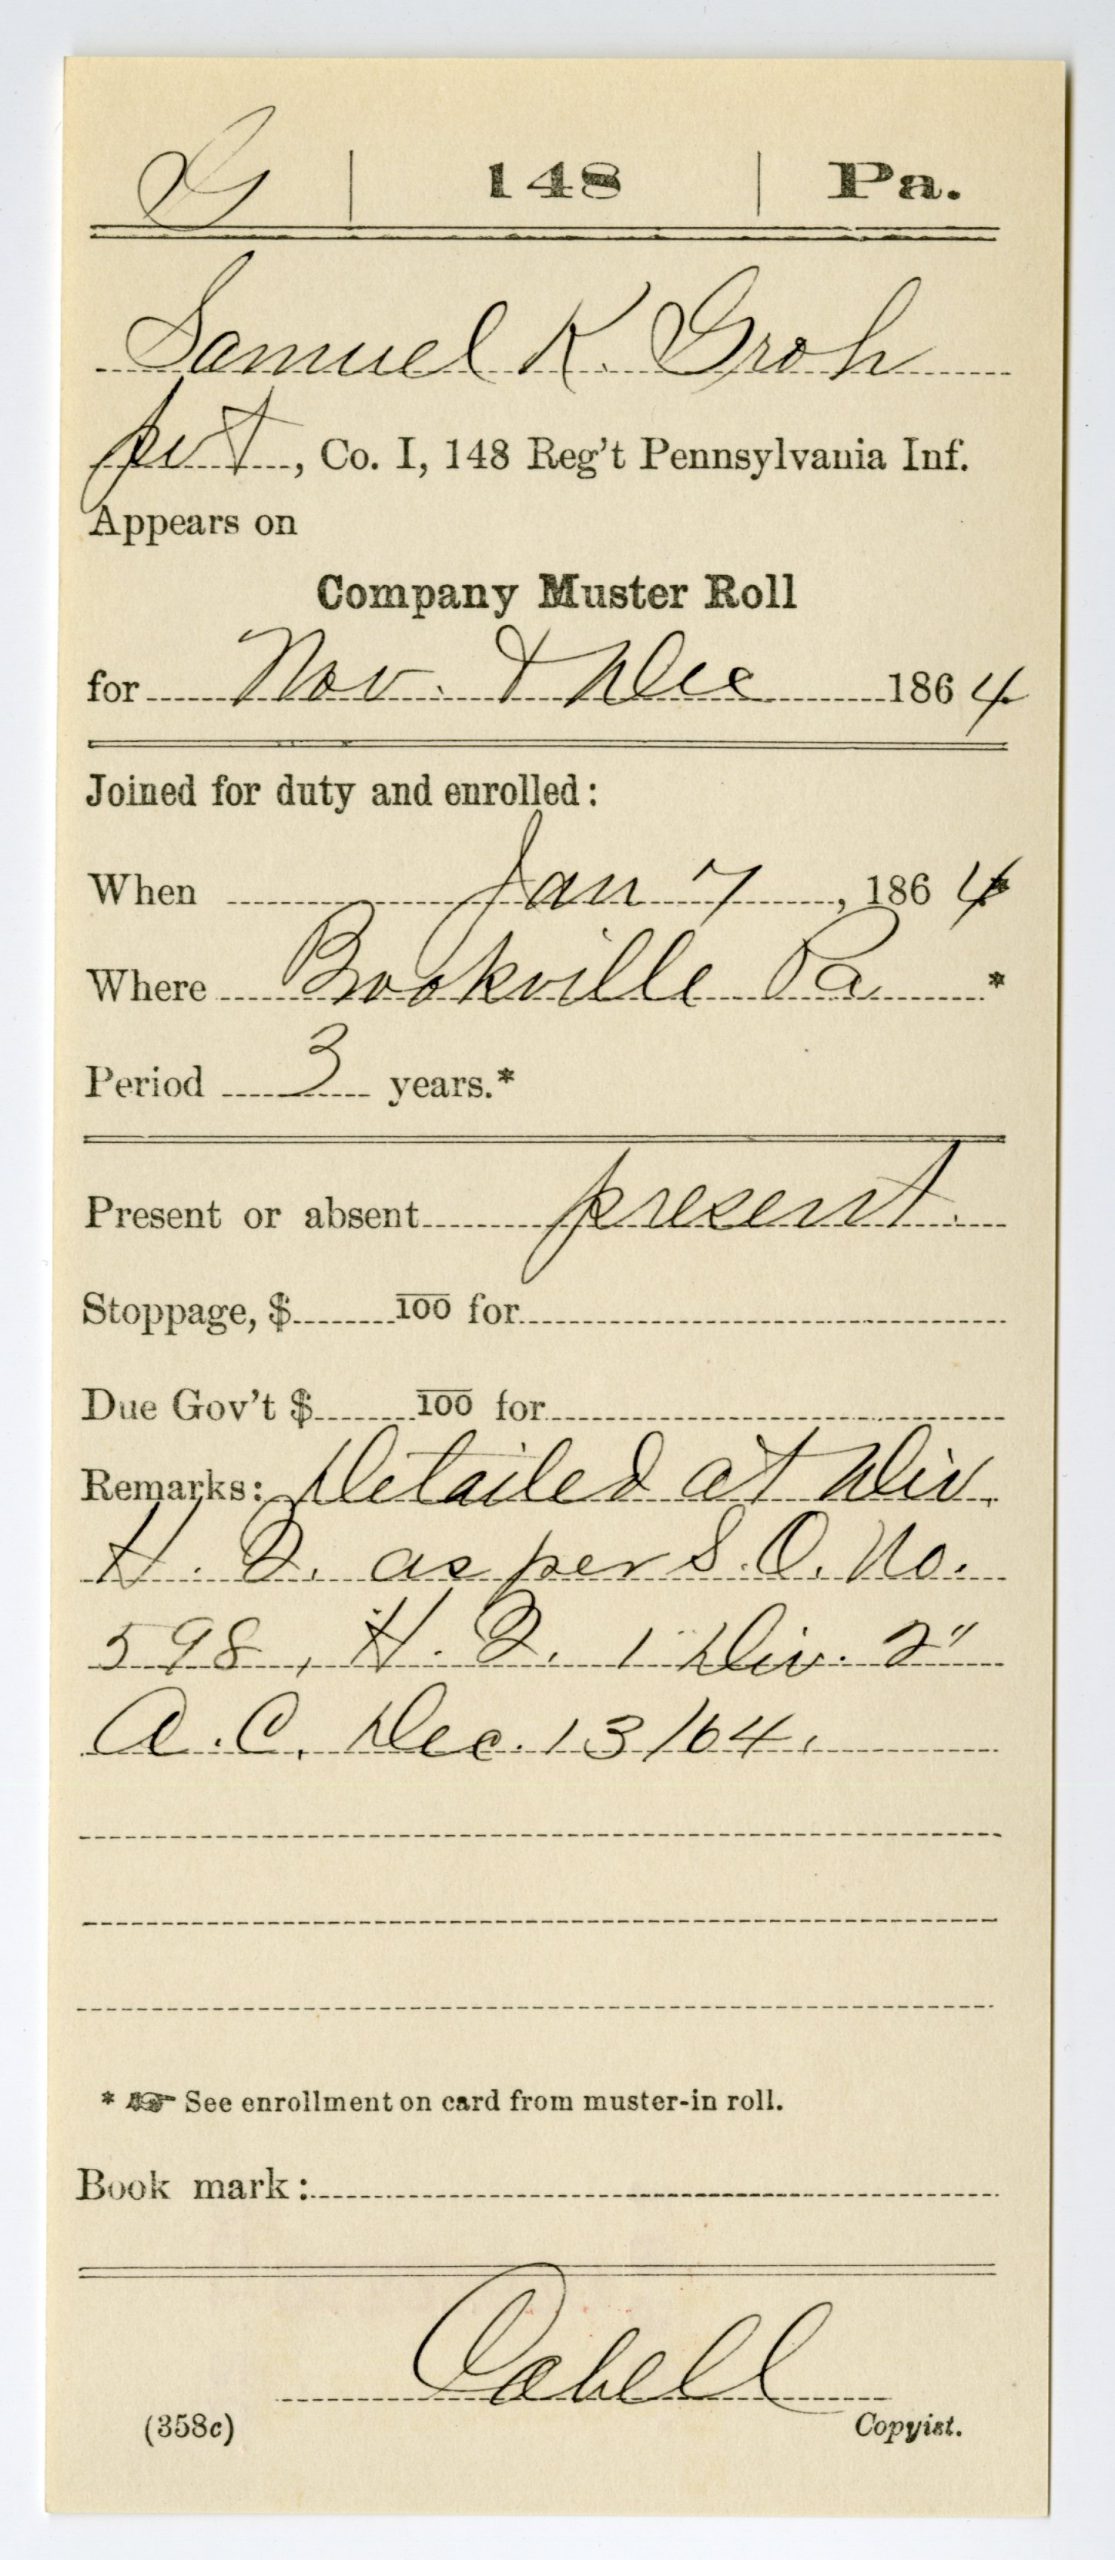 G | 148 | Pa.
Samuel K. Groh
pvt, Co. I, 148 Reg't Pennsylvania Inf.
Appears on
Company Muster Roll
for Nov. & Dec 1864
Joined for duty and enrolled:
When Jan 7, 1864*
Where Brookville Pa *
Period 3 years.*
Present or absent present.
Stoppage, $ 100 for
Due Gov't $ 100 for
Remarks: Detailed at Div.
H. Q. as per S. O. No.
598, H. Q. 1" Div. 2"
A. C. Dec. 13/64.
* ☞ See enrollment on card from muster-in roll.
Book mark:
Cabell
(358c) Copyist.